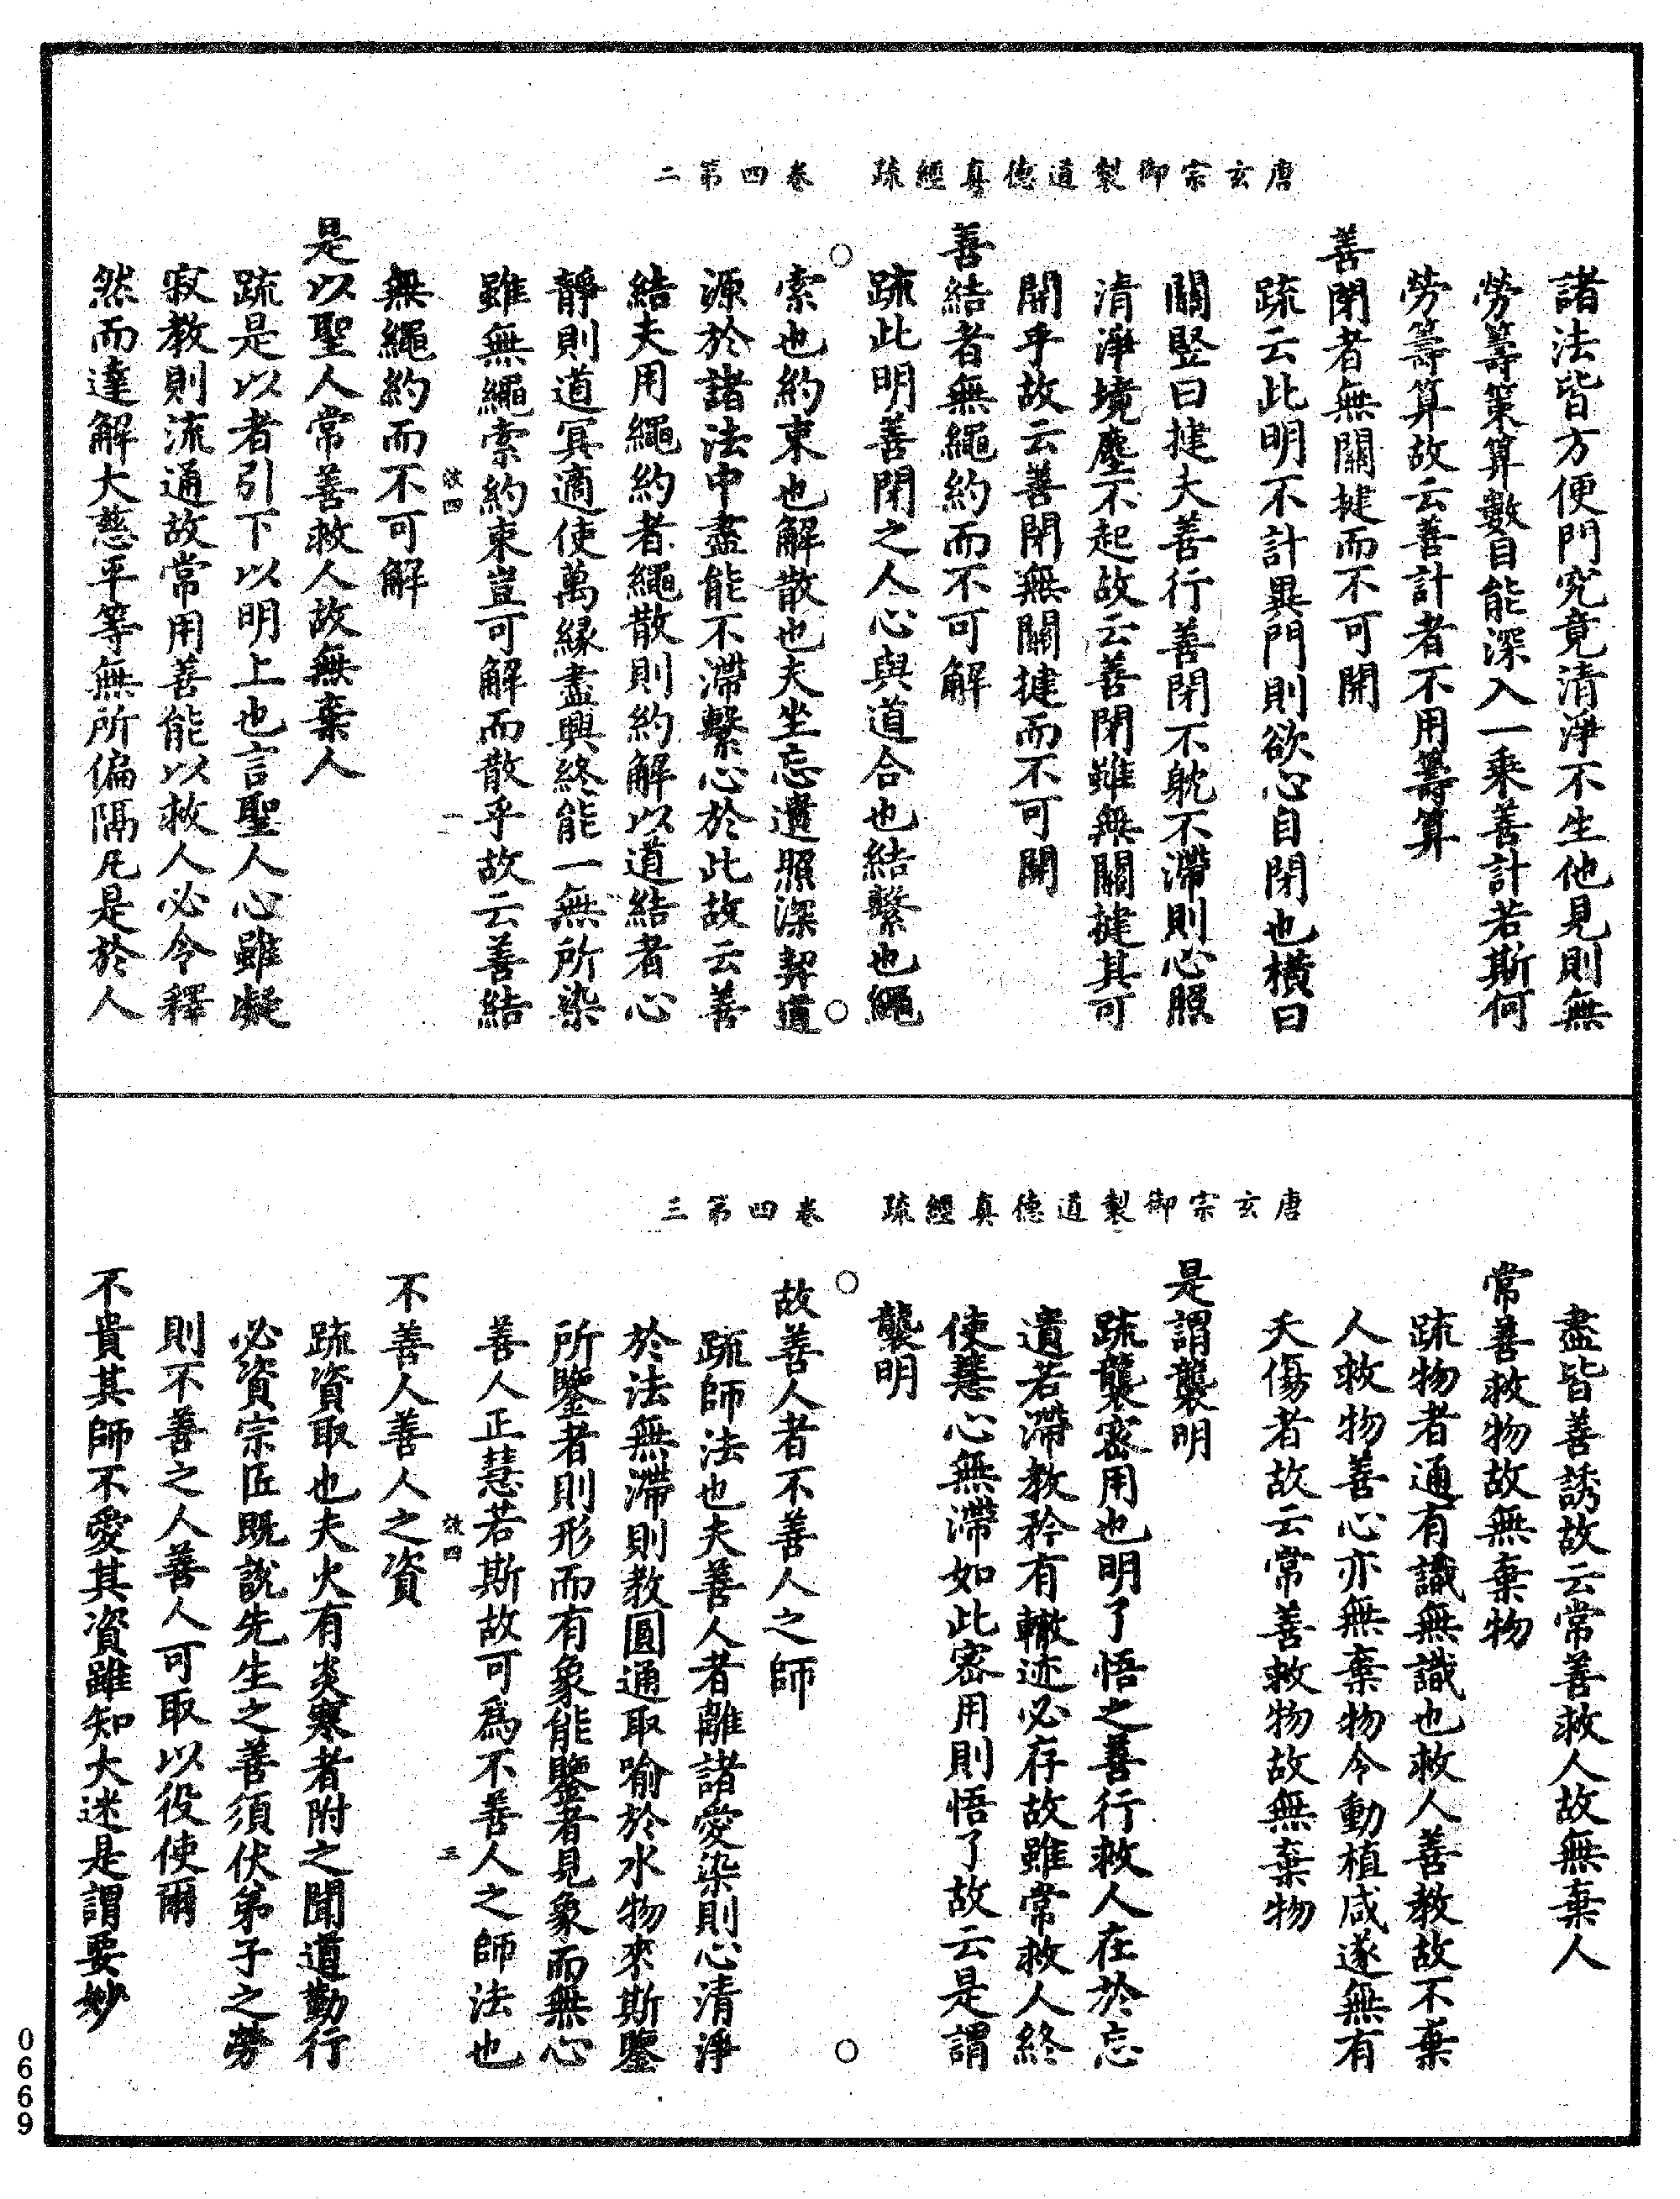 唐玄宗御製道德真經疏　卷四第二
諸法皆方便門究竟清淨不生他見則無
勞籌策算數自能深入一乘善計若斯何
勞籌算故云善計者不用籌算
善閉者無關揵而不可開
疏云此明不計異門則欲心自閉也橫曰
關豎曰揵夫善行善閉不躭不滯則心照
清淨境塵不起故云善閉雖無關揵其可
開乎故云善閉無關揵而不可開
善結者無繩約而不可解
疏此明善閉之人心與道合也結繫也繩
索也約束也解散也夫坐忘遺照深契道
源於諸法中盡能不滯繫心於此故云善
結夫用繩約者繩散則約解以道結者心
靜則道冥適使萬緣盡興終能一無所染
雖無繩索約束豈可解而散乎故云善結
効四　二
無繩約而不可解
是以聖人常善救人故無棄人
疏是以者引下以明上也言聖人心雖凝
寂教則流通故常用善能以救人必令釋
然而達解大慈平等無所偏隔凡是於人
唐玄宗御製道德真經疏　卷四第三
盡皆善誘故云常善救人故無棄人
常善救物故無棄物
疏物者通有識無識也救人善教故不棄
人救物善心亦無棄物令動植咸遂無有
夭傷者故云常善救物故無棄物
是謂襲明
疏襲密用也明了悟之善行救人在於忘
遺若滯教矜有轍迹必存故雖常救人終
使慧心無滯如此密用則悟了故云是謂
襲明
故善人者不善人之師
疏師法也夫善人者離諸愛染則心清淨
於法無滯則教圓通取喻於水物來斯鑒
所鑒者則形而有象能鑒者見象而無心
善人正慧若斯故可爲不善人之師法也
効四　三
不善人善人之資
疏資取也夫火有炎寒者附之聞道勤行
必資宗匠既說先生之善須伏弟子之勞
則不善之人善人可取以役使爾
不貴其師不愛其資雖知大迷是謂要妙
0669